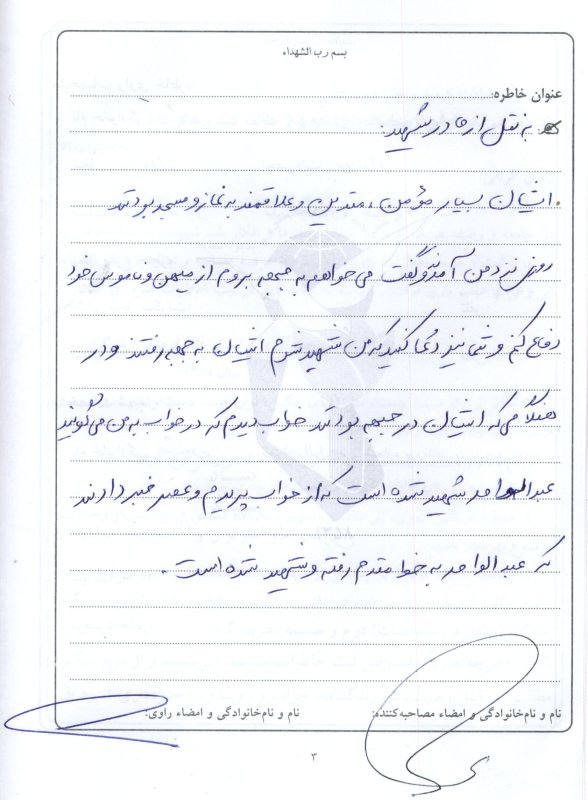 بسم رب الشهداء
عنوان خاطره:
به نقل از مادر شهید:
ایشان بسیار مؤمن، متدین و علاقمند به نماز و مسجد بودند
روزی نزد من آمد و گفت می خواهم به جبهه بروم از میهن و ناموس خود
دفاع کنم و شما نیز دعا کنید که من شهید شوم ایشان به جبهه رفتند و در
هنگامی که ایشان در جبهه بودند خواب دیدم که در خواب به من می گویند
عبدالواحد شهید شده است که از خواب پریدم و عصر خبر دادند
که عبدالواحد به خط مقدم رفته و شهید شده است.
نام و نام‌خانوادگی و امضاء مصاحبه‌کننده: نام و نام‌خانوادگی و امضاء راوی:
۳